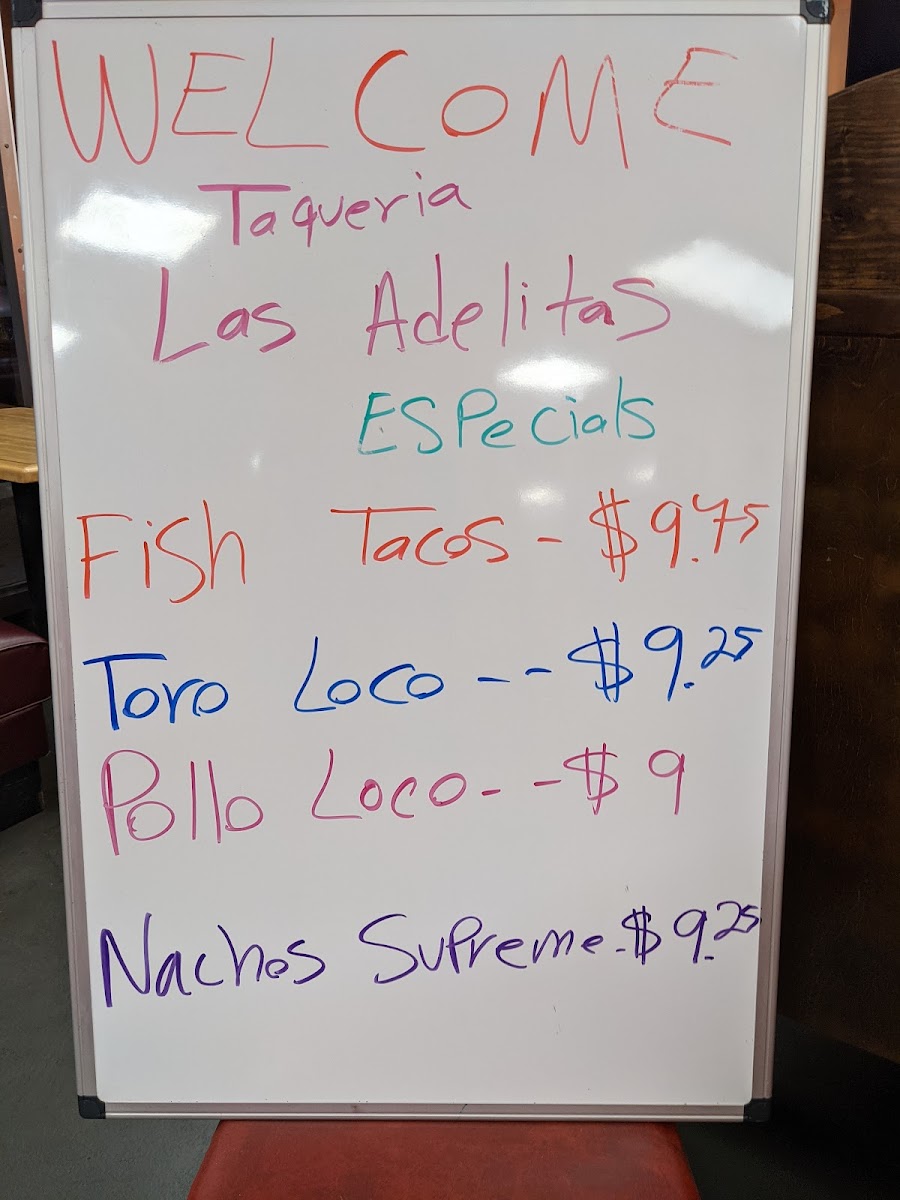 WELCOME
Taqueria
Las Adelitas
ESPecials
Fish Tacos - $9.75
Toro Loco -- $9.25
Pollo Loco -- $9
Nachos Supreme - $9.25